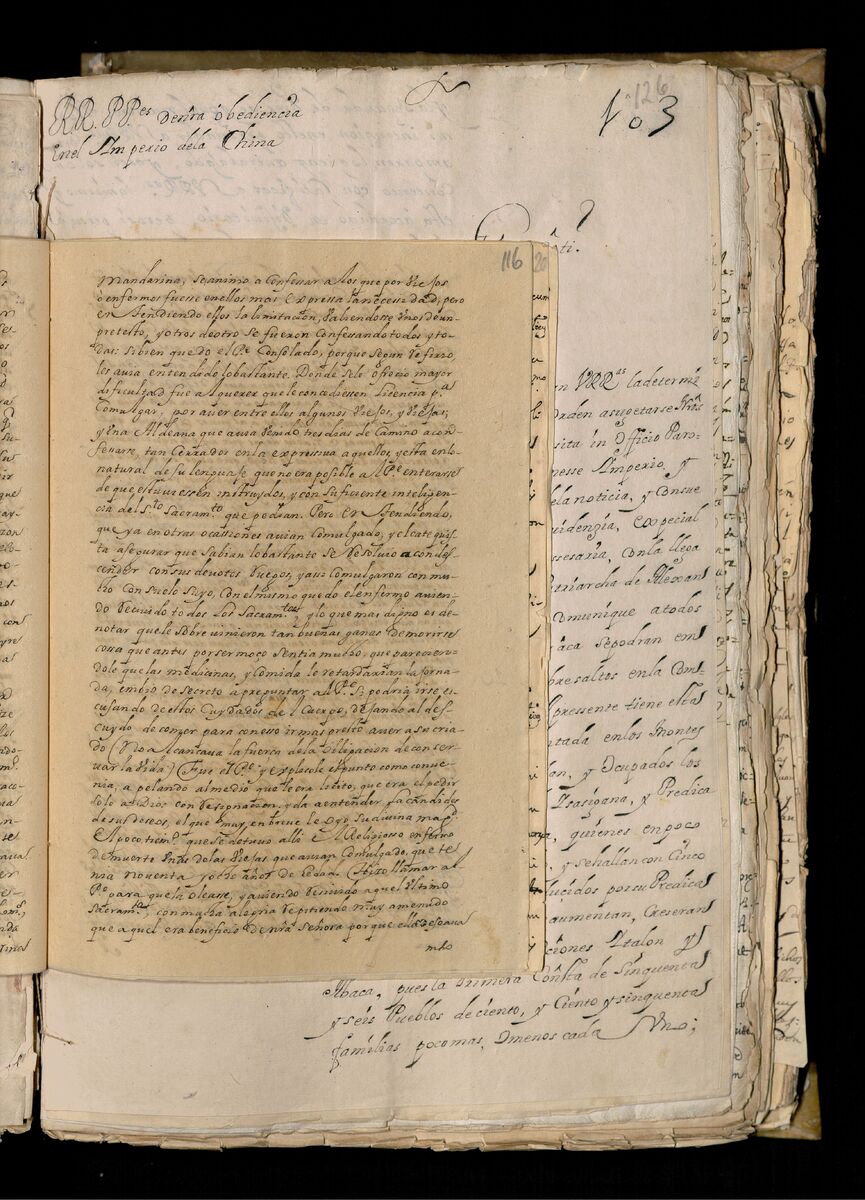 RR. PP.es de nra obediencia
En el Imperio de la China
126
No 3
116
mandarina, se animo a Confessar a los que por Viejos
ò enfermos fuesse en ellos mas expressa la necessidad, pero
en tendiendo ellos la limitacion, Valiendosse Unos de un
pretexto, y otros de otro se fueron Confessando todos y to-
das: si bien quedo el Pe. Consolado, porque segun refirio
les auia entendido lo bastante. Donde se le ofrecio mayor
dificultad fue al querer que le concediessen Licencia pa
Comulgar, por auer entre ellos algunos Viejos, y Viejas;
y Una Aldeana que auia Venido tres dias de Camino a con-
fessarse, tan Cerrados en la expressiua aquellos, y esta en lo
natural de su lenguaje que no era posible al Pe. enterarse
de que estuuiessen instruydos, y con suficiente inteligen-
cia del Sto. Sacramto. que pedian. Pero en tendiendo,
que ya en otras ocasiones auian Comulgado, y el catequis-
ta asegurar que sabian lo bastante se resoluio a condes-
cender con sus deuotos ruegos, y assi comulgaron con mu-
cho Consuelo suyo, Con el mismo quedo el enfermo auien-
do recivido todos los Sacramtos. y lo que mas digno es de
notar que le sobreuinieron tan buenas ganas de morirse
cosa que antes por ser moço sentia mucho, que parecien-
dole que las medicinas, y comida le retardarian la Jorna-
da, embio de secreto à preguntar al Pe. si podria irse es-
cusando de estos Cuydados del Cuerpo, dexando al des-
cuydo de comer para con esso ir mas presto a uer a su cria-
dor (No alcançaua la fuerça de la obligacion de conser-
uar la Vida) Fue el Pe. y explicole el punto como conue-
nia, a pelando al medio que le era licito, que era el pedir
solo a Dios con resignacion, y da a entender la càndidez
de sus deseos, el que muy en breue le oyo su diuina magd.
A poco tiempo que se detuuo alli el Religioso en fermo
de muerte Una de las Viejas que auian Comulgado, que te-
nia nouenta y ocho años de hedad. Hizo llamar al
Pe. para que la oleasse, y auiendo reciuido aquel Ultimo
Sacramto., con mucha alegria repitiendo muy amenudo
que aquel era beneficio de nra Señora porque ella deseaua
mho
en VRRas la determi-
Orden asugetarse Nros
sita in Officio Par-
nesse Imperio, y
ela noticia, y Consue
uidenzia, expecial
ssesaria, Con la llega
triarcha de Alexan
omunique atodos
aca sepodran em
bresaltos enla Com
pressente tiene esta
ntada en los montes
lan, y Ocupados los
Isasigana, y Predica
quienes en poco
y sehallan con Cinco
lucidos porsu Predica
aumentan, Creseran
ciones Italon y
Abaca, pues la Primera Consta de Sinquenta
y séis Pueblos de ciento, y Ciento y sinquenta
familias poco mas, ò menos cada Uno;